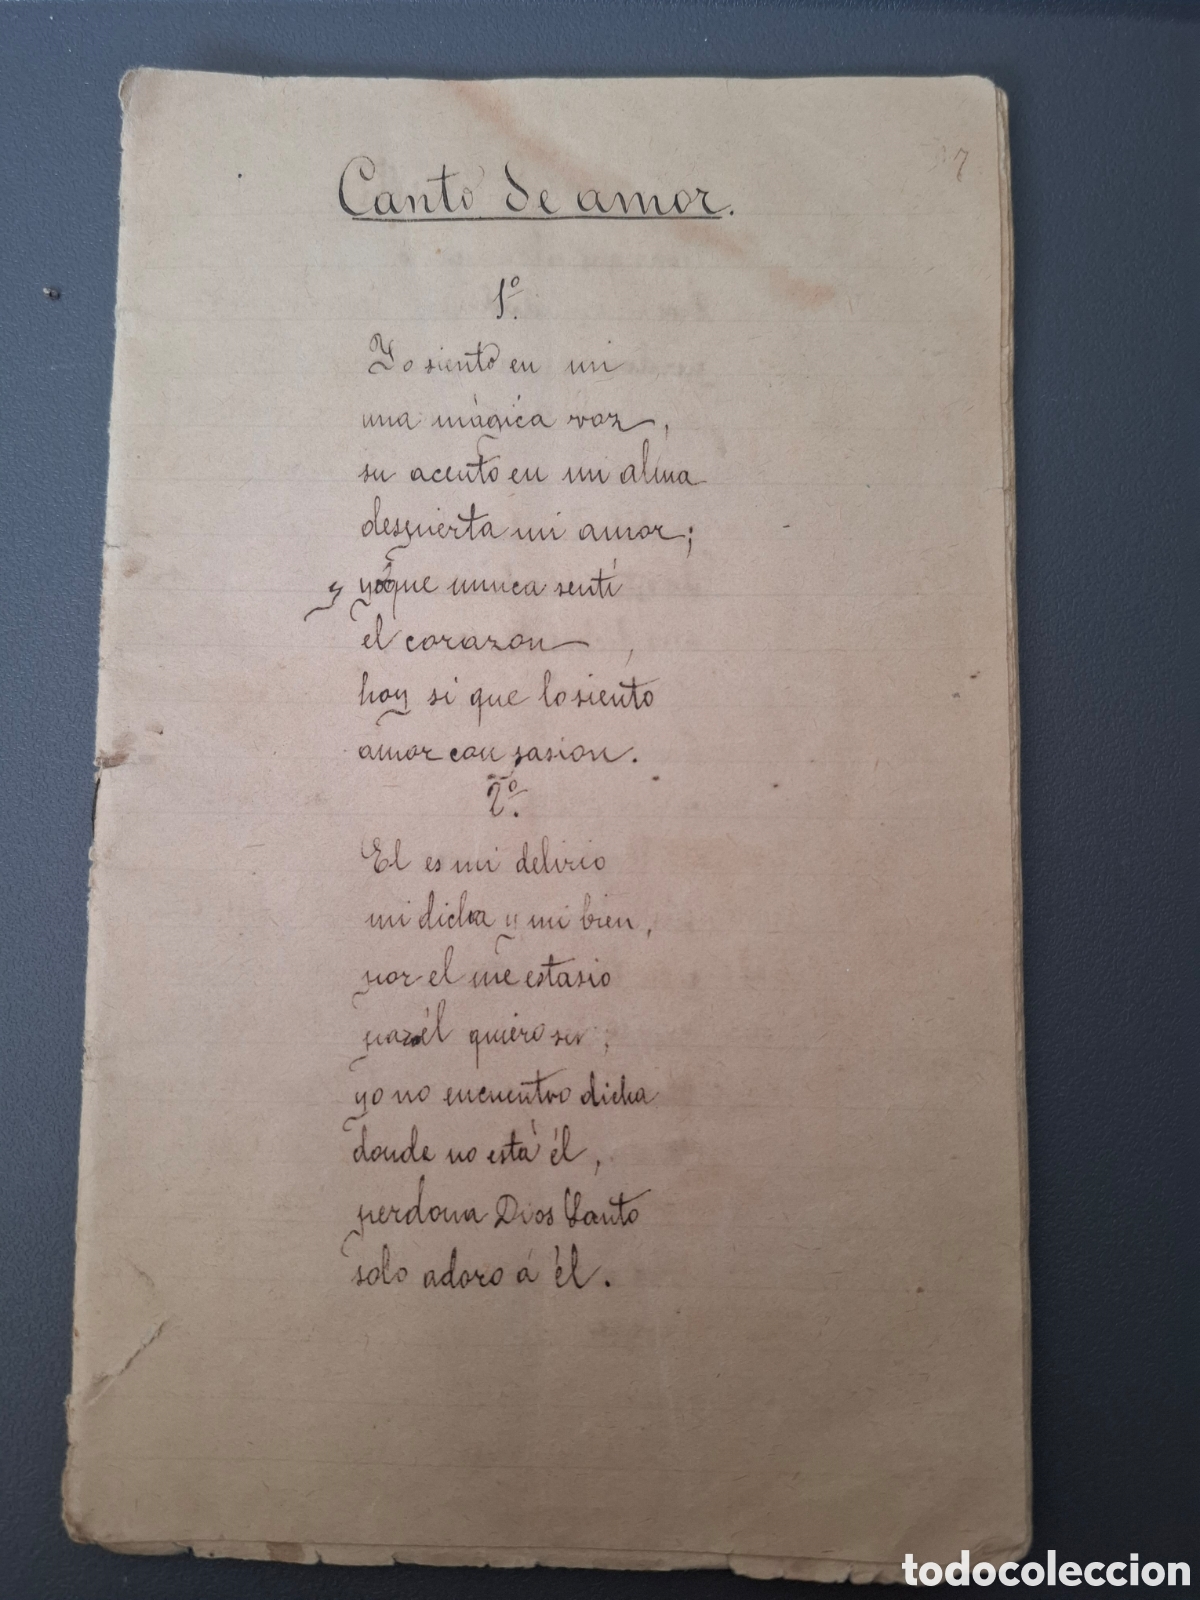 7
Canto de amor.
1º.
Yo siento en mi
una mágica voz,
su acento en mi alma
despierta mi amor;
y yo que nunca sentí
el corazon,
hoy si que lo siento
amor con pasion.
2º.
El es mi delirio
mi dicha y mi bien,
por el me estasio
por él quiero ser;
yo no encuentro dicha
donde no está él,
perdona Dios Santo
solo adoro á él.
todocoleccion